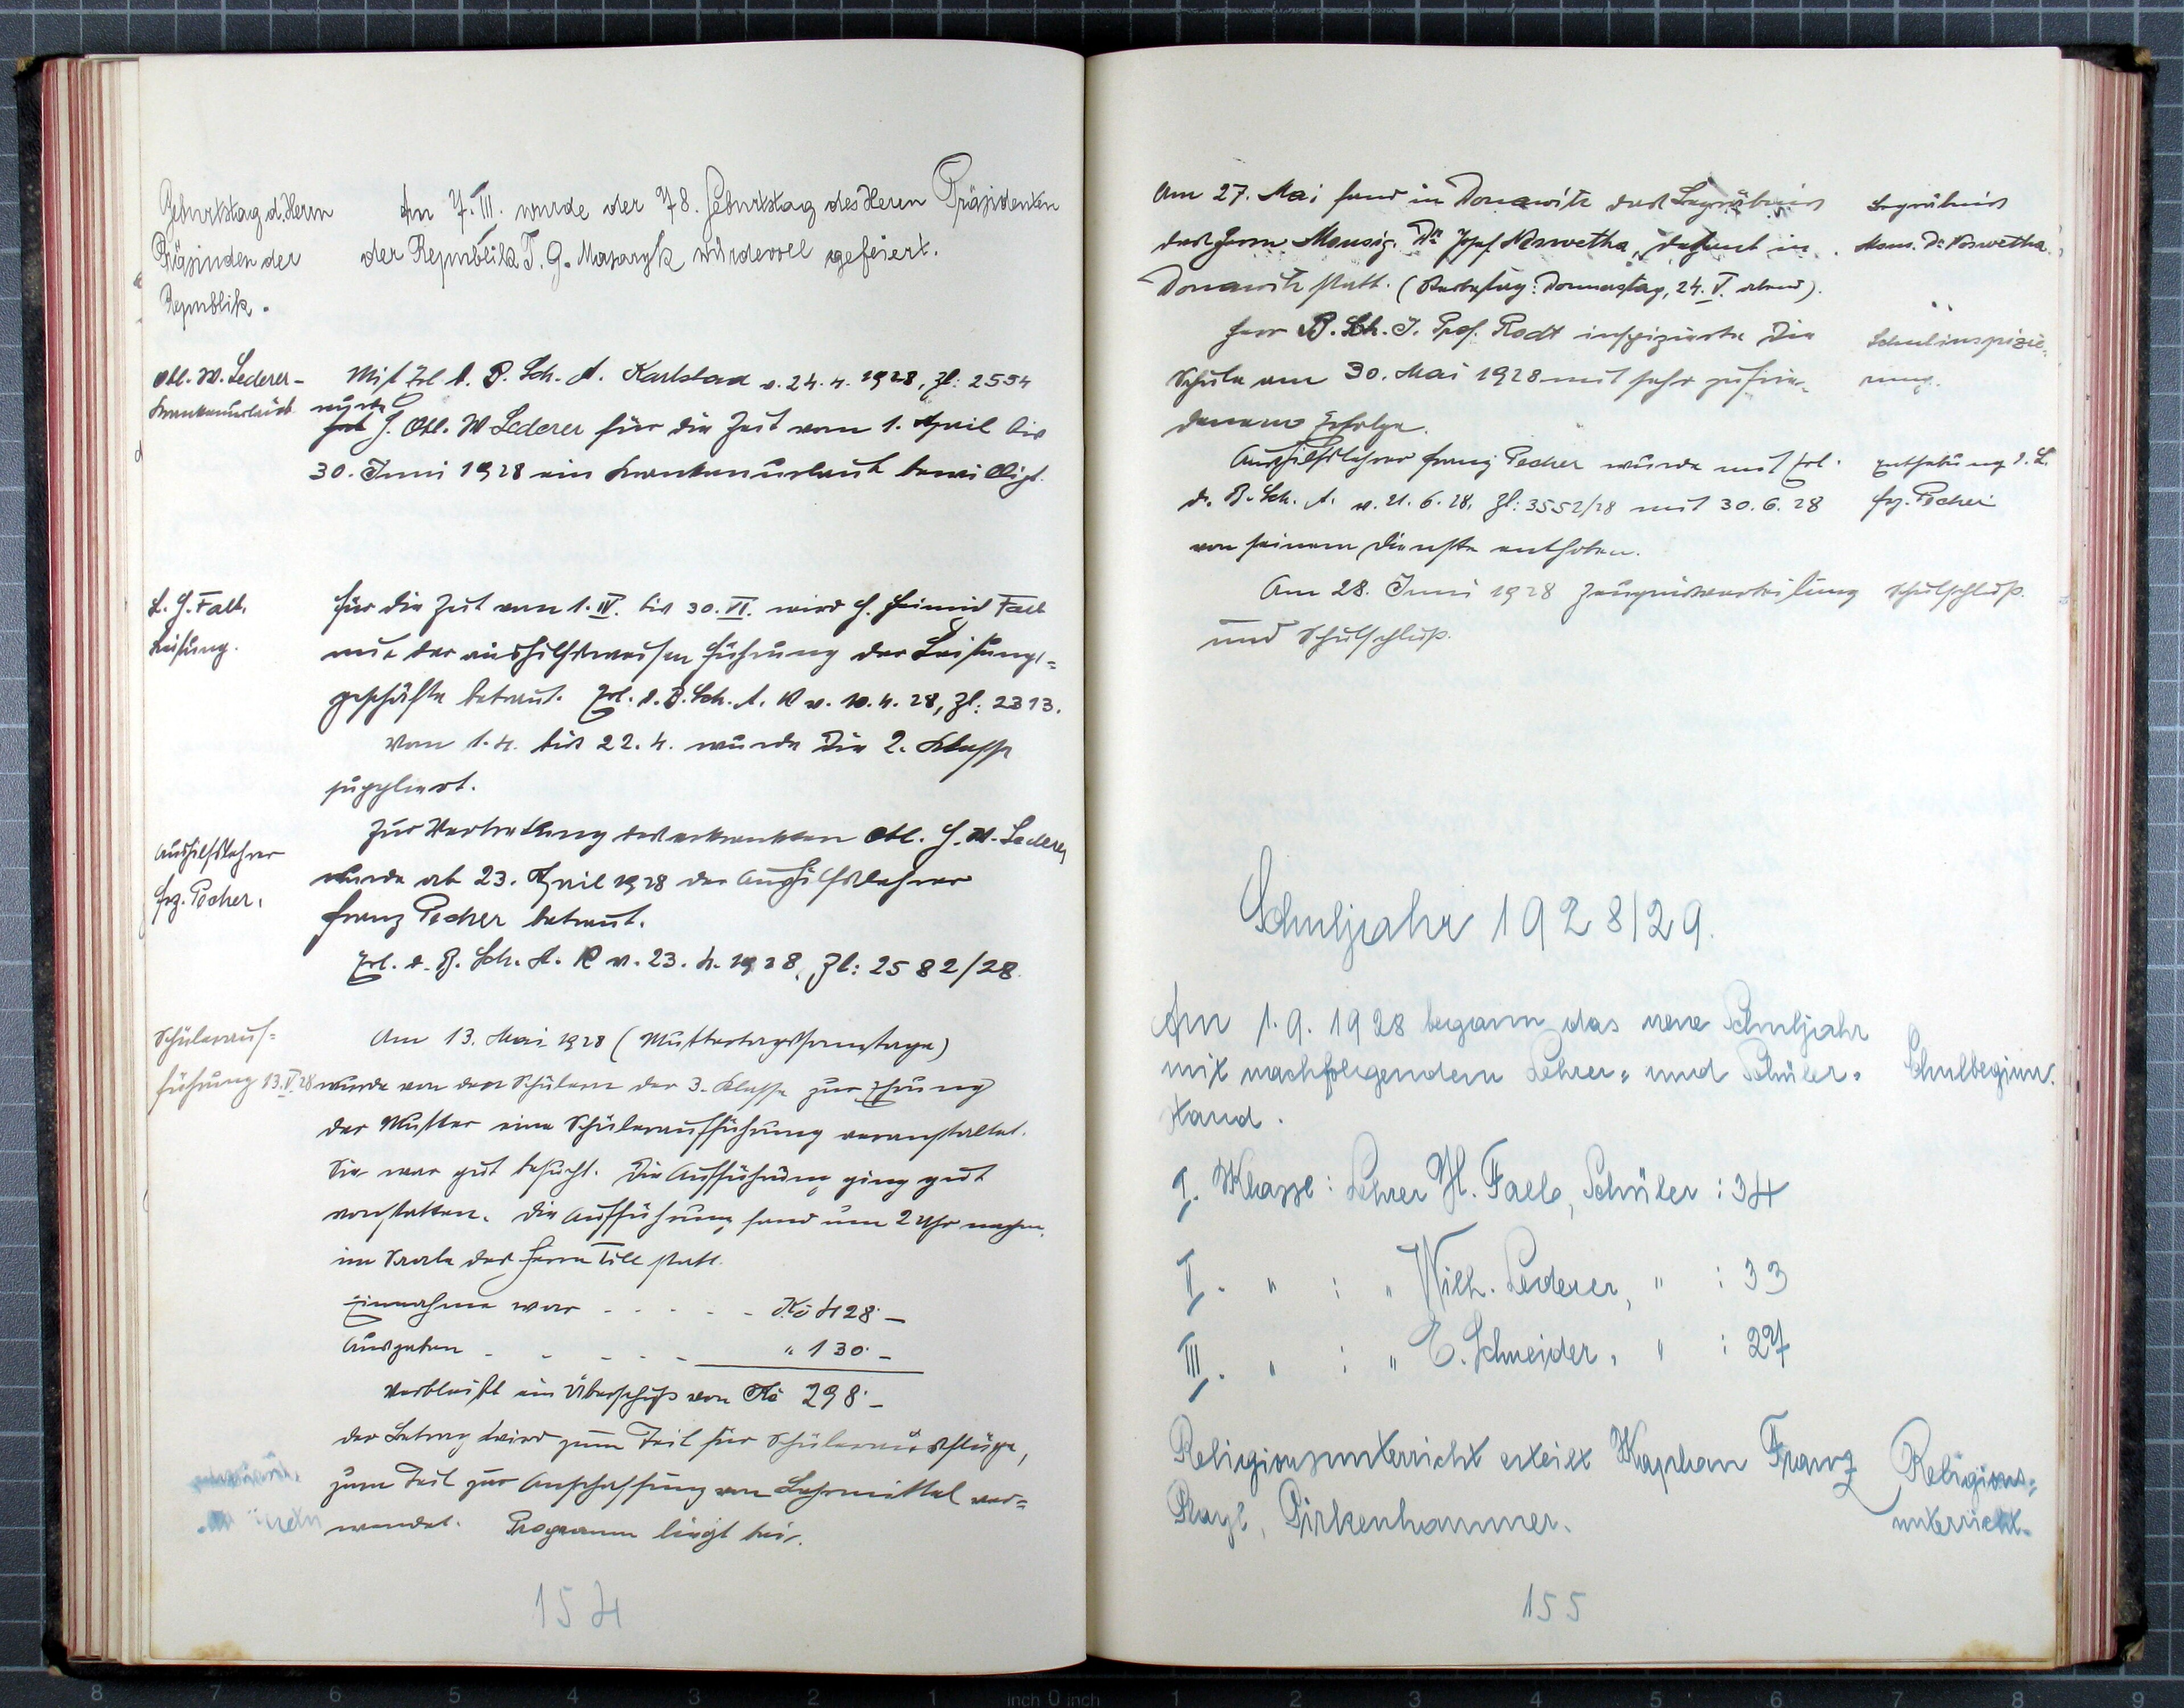 Geburtstag d. Herrn
Präsinden der
Republik.
Am 7. III. wurde der 78. Geburtstag des Herrn Präsidenten
der Republik T. G. Masaryk würdevoll gefeiert.
Obl. W. Lederer-
Krankenurlaub
Mit Erl. d. B. Sch. A. Karlsbad v. 24. 4. 1928, Zl: 2554
wurde
H. Obl. W Lederer für die Zeit vom 1. April bis
30. Juni 1928 ein Krankenurlaub bewilligt.
L. H. Falb.
Leitung.
Für die Zeit vom 1. IV. bis 30. VI. wird H. Heinrich Falb
mit der aushilfsweisen Führung der Leitungs=
geschäfte betraut. Erl. d. B. Sch. A. K v. 10. 4. 28, Zl: 2313.
Vom 1. 4. bis 22. 4. wurde die 2. Klasse
suppliert.
Aushilfslehrer
Frz. Pecher.
Zur Vertretung des erkrankten Obl. H. W. Lederer
wurde ab 23. April 1928 der Aushilfslehrer
Franz Pecher betraut.
Erl. d. B. Sch. A. K v. 23. 4. 1928, Zl: 2582/28
Schülerauf=
führung 13. V. 28
Am 13. Mai 1928 (Muttertagssonntage)
wurde von den Schülern der 3. Klasse zur Ehrung
der Mutter eine Schüleraufführung veranstaltet.
Sie war gut besucht. Die Aufführung ging gut
vonstatten. Die Aufführung fand um 2 Uhr nachm.
im Saale des Herrn Till statt.
Einnahme war - - - - - Kč 428·–
Ausgaben - - - - - " 130·–
Verbleibt ein Überschuß von Kč 298·–
Der Betrag wird zum Teil für Schülerausflüge,
zum Teil zur Anschaffung von Lehrmittel ver=
wendet. Programm liegt bei.
154
Am 27. Mai fand in Donawitz das Begräbnis
des Herrn Monsig. Dr. Josef, Dechant in
Donawitz statt. (Sterbetag: Donnerstag, 24. V. abend).
Begräbnis
Mons. Dr.
Herr B. Sch. I. Prof. Rodt inspizierte die
Schule am 30. Mai 1928 mit sehr zufrie-
denem Erfolge.
Schulinspizie-
rung.
Aushilfslehrer Franz Pecher wurde mit Erl.
d. B. Sch. A. v. 21. 6. 28, Zl: 3552/28 mit 30. 6. 28
von seinem Dienste enthoben.
Enthebung d. L.
Frz. Pecher
Am 28. Juni 1928 Zeugnisverteilung
und Schulschluß.
Schulschluß.
Schuljahr 1928/29.
Am 1. 9. 1928 begann das neue Schuljahr
mit nachfolgendem Lehrer= und Schüler=
stand.
Schulbeginn.
I. Klasse: Lehrer H. Falb, Schüler: 34
II. " : " Wilh. Lederer, " : 33
III. " : " E. Schneider, " : 27
Religionsunterricht erteilt Kaplan Franz
Pirkenhammer.
Religions=
unterricht.
155